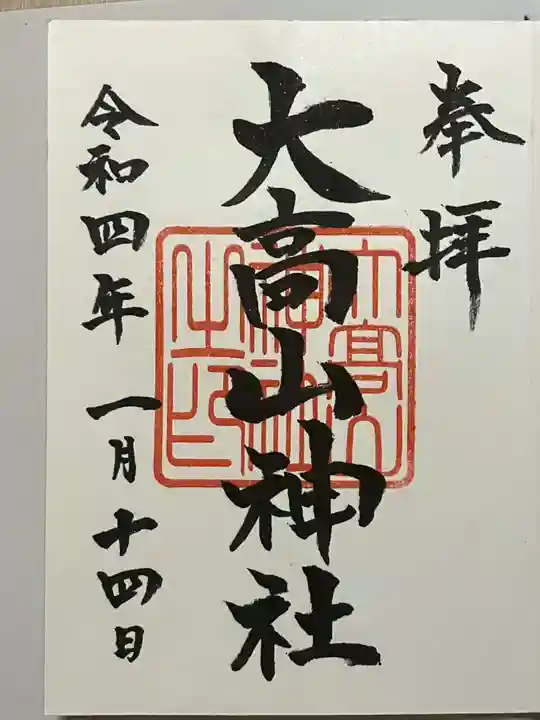 奉拝
大高山神社
令和四年一月十四日
大高山神社之印